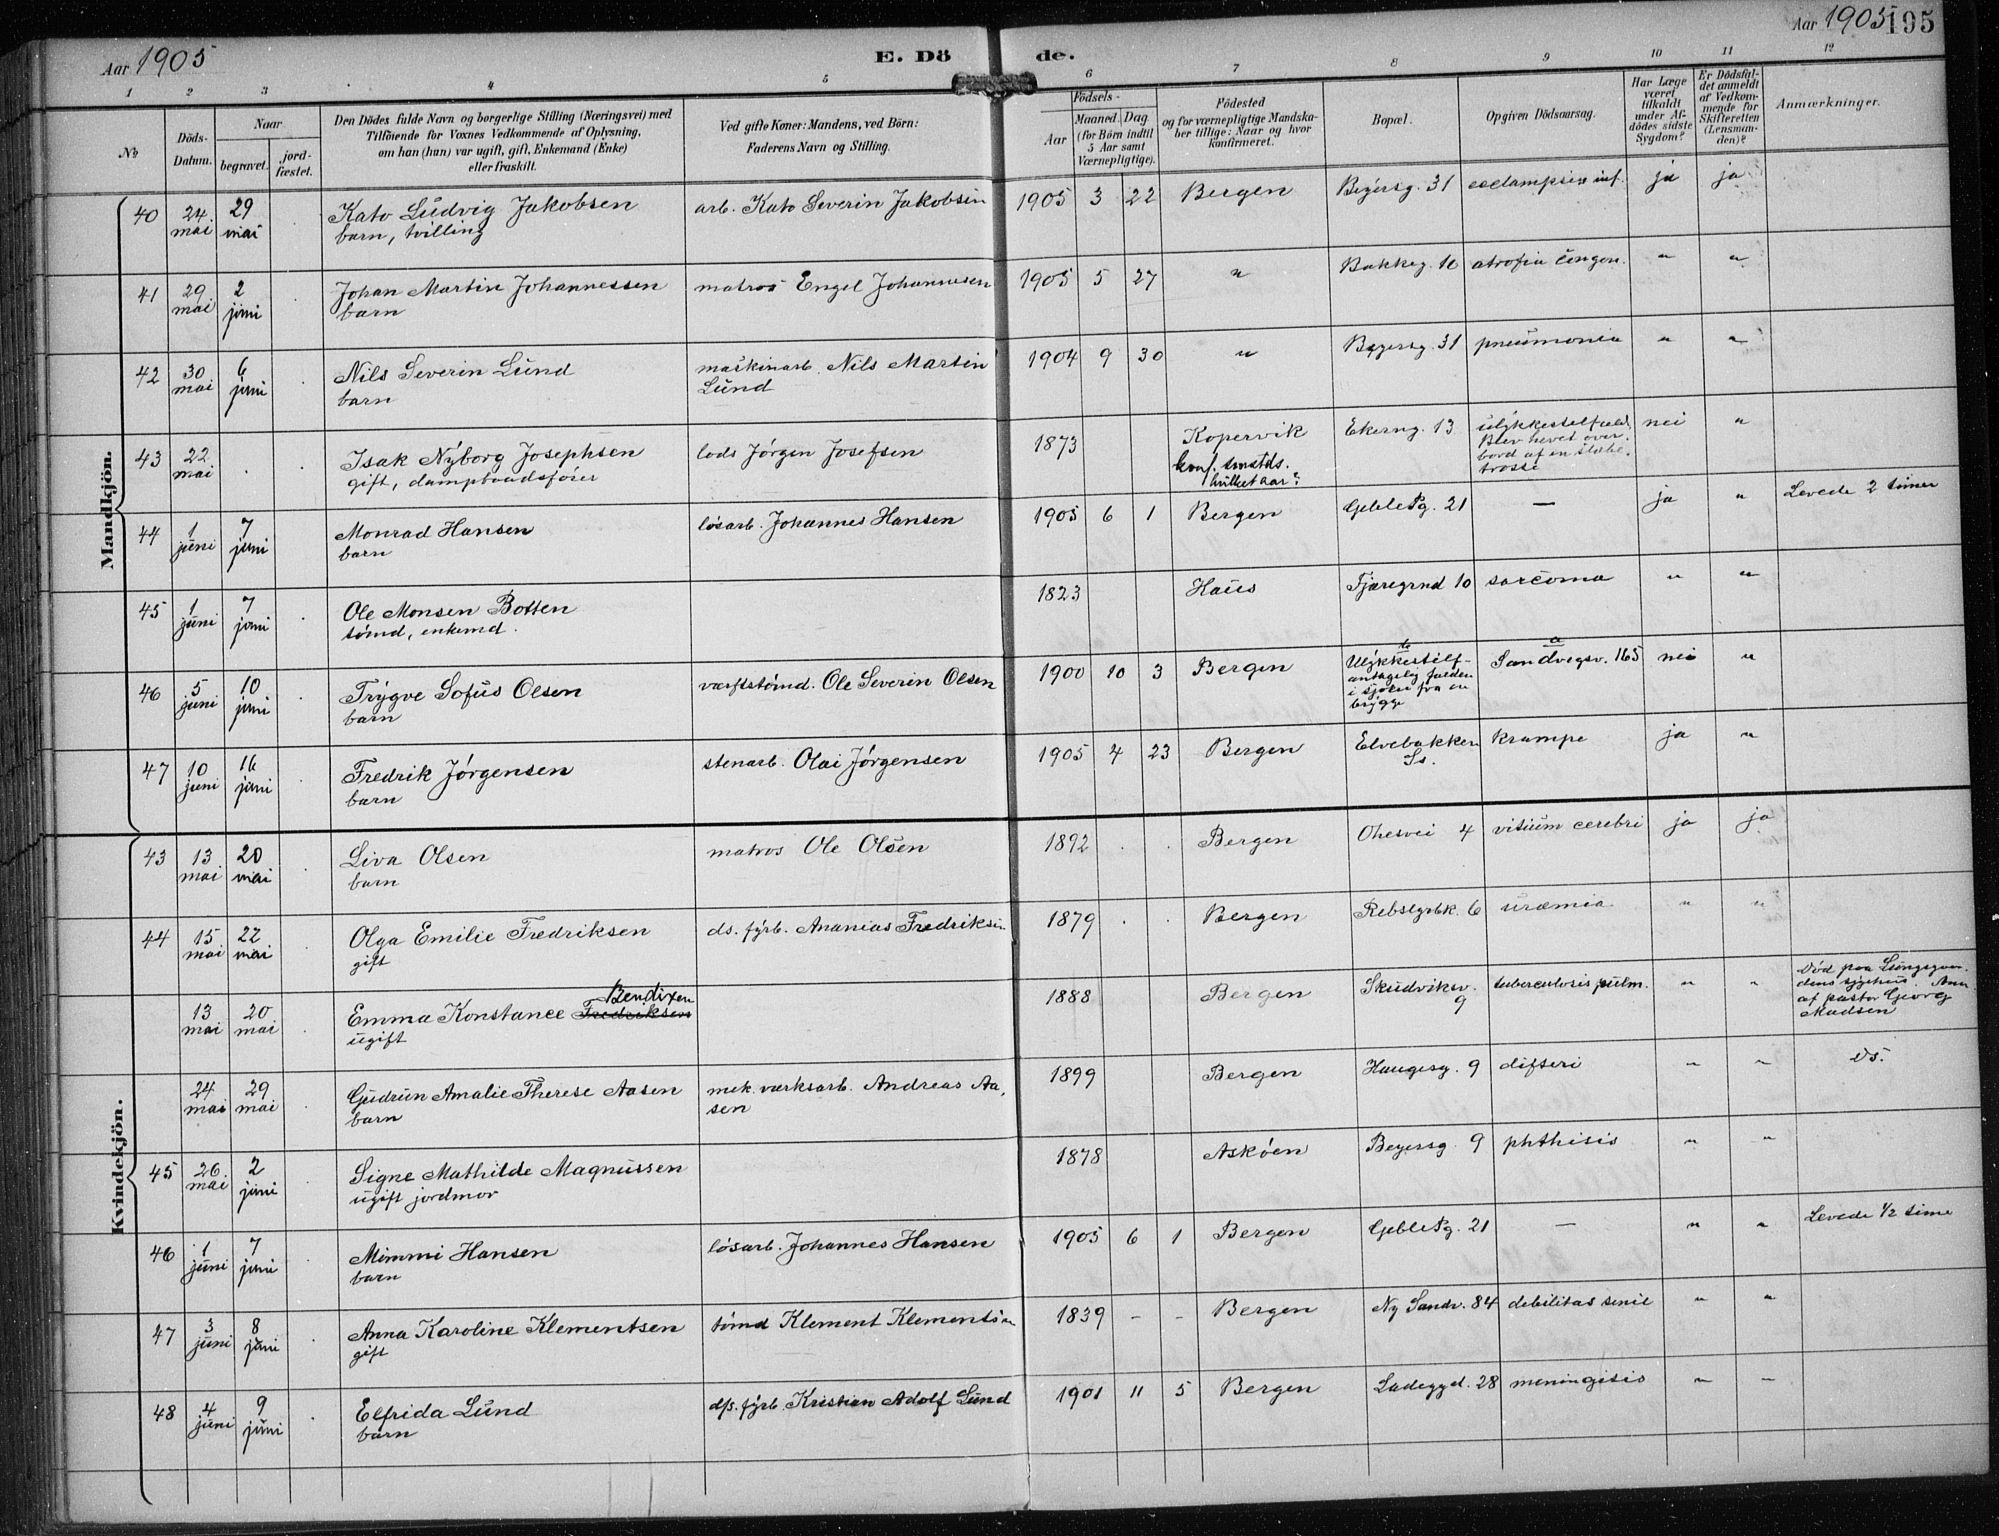 Aar 1905
E. Dö
de.
Aar 1905
195
1 2 3 4 5 6 7 8 9 10 11 12
No
Döds-Datum.
Naar
begravet.
jord-fæstet.
Den Dödes fulde Navn og borgerlige Stilling (Næringsvei) med
Tilföiende for Voxnes Vedkommende af Oplysning,
om han (hun) var ugift, gift, Enkemand (Enke)
eller fraskilt.
Ved gifte Koner: Mandens, ved Börn:
Faderens Navn og Stilling.
Födsels-
Aar
Maaned. Dag
(for Börn indtil
5 Aar samt
Værnepligtige).
Födested
og for værnepligtige Mandska-
ber tillige: Naar og hvor
konfirmeret.
Bopæl.
Opgiven Dödsaarsag.
Har Læge
været
tilkaldt
under Af-
dödes sidste
Sygdom?
Er Dödsfal-
det anmeldt
af Vedkom-
mende for
Skifteretten
(Lensman-
den)?
Anmærkninger.
Mandkjön.
40 24 mai 29 mai Kato Ludvig Jakobsen arb. Kato Severin Jakobsen 1905 3 22 Bergen Beyersg. 31 eclampsia inf. ja ja
barn, tvilling
41 29 mai 2 juni Johan Martin Johannessen matros Engel Johannesen 1905 5 27 " Bakkeg. 16 atrofia congen. " "
barn
42 30 mai 6 juni Nils Severin Lund maskinarb. Nils Martin 1904 9 30 " Beyersg. 31 pneumonia " "
barn Lund
43 22 mai Isak Nyborg Josephsen lods Jørgen Josefsen 1873 Kopervik Ekerng. 13 ulykkestelfæld. nei "
gift, dampbaadsfører konf. smstds. Blev hevet over-
hvilket aar? bord af en slæbe-
trosse
44 1 juni 7 juni Monrad Hansen løsarb. Johannes Hansen 1905 6 1 Bergen Geblesg. 21 — ja " Levede 2 timer
barn
45 1 juni 7 juni Ole Monsen Botten 1823 Haus Fjæregrnd 10 sarcoma " "
tømd, enkemd.
46 5 juni 10 juni Trygve Sofus Olsen værftstømd. Ole Severin Olsen 1900 10 3 Bergen b Ulykkestilf- a Sandvigsv. 165 nei "
barn antagelig falden
i sjøen fra en
brygge
47 10 juni 16 juni Fredrik Jørgensen stenarb. Olai Jørgensen 1905 4 23 Bergen Elvebakken krampe ja "
barn Ss.
Kvindekjön.
43 13 mai 20 mai Liva Olsen matros Ole Olsen 1892 . . Bergen Ohesvei 4 vitium cerebri ja ja
barn
44 15 mai 22 mai Olga Emilie Fredriksen ds. fyrb. Ananias Fredriksen 1879 . . Bergen Rebslgrbk. 6 uræmia " "
gift
13 mai 20 mai Emma Konstance Fredriksen Bendixen 1888 Bergen Skudviksv. 9 tuberculosis pulm. " " Død paa Lungegaar-
ugift dens sygehus. Anm.
af pastor Georg
Madsen
24 mai 29 mai Gudrun Amalie Therese Aasen mek. værksarb. Andreas Aa- 1899 Bergen Haugesg. 9 difteri " " Ds.
barn sen
45 26 mai 2 juni Signe Mathilde Magnussen 1878 Askøen Beyersg 9 phthisis " "
ugift jordmor
46 1 juni 7 juni Mimmi Hansen løsarb. Johannes Hansen 1905 6 1 Bergen Geblesg. 21 — " " Levede 1/2 time
barn
47 3 juni 8 juni Anna Karoline Klementsen tømd Klement Klementsen 1839 - - Bergen Ny Sandv. 84 debilitas senil " "
gift
48 4 juni 9 juni Elfrida Lund d/s. fyrb. Kristian Adolf Lund 1901 11 5 Bergen Ladegyd. 28 meningitis " "
barn